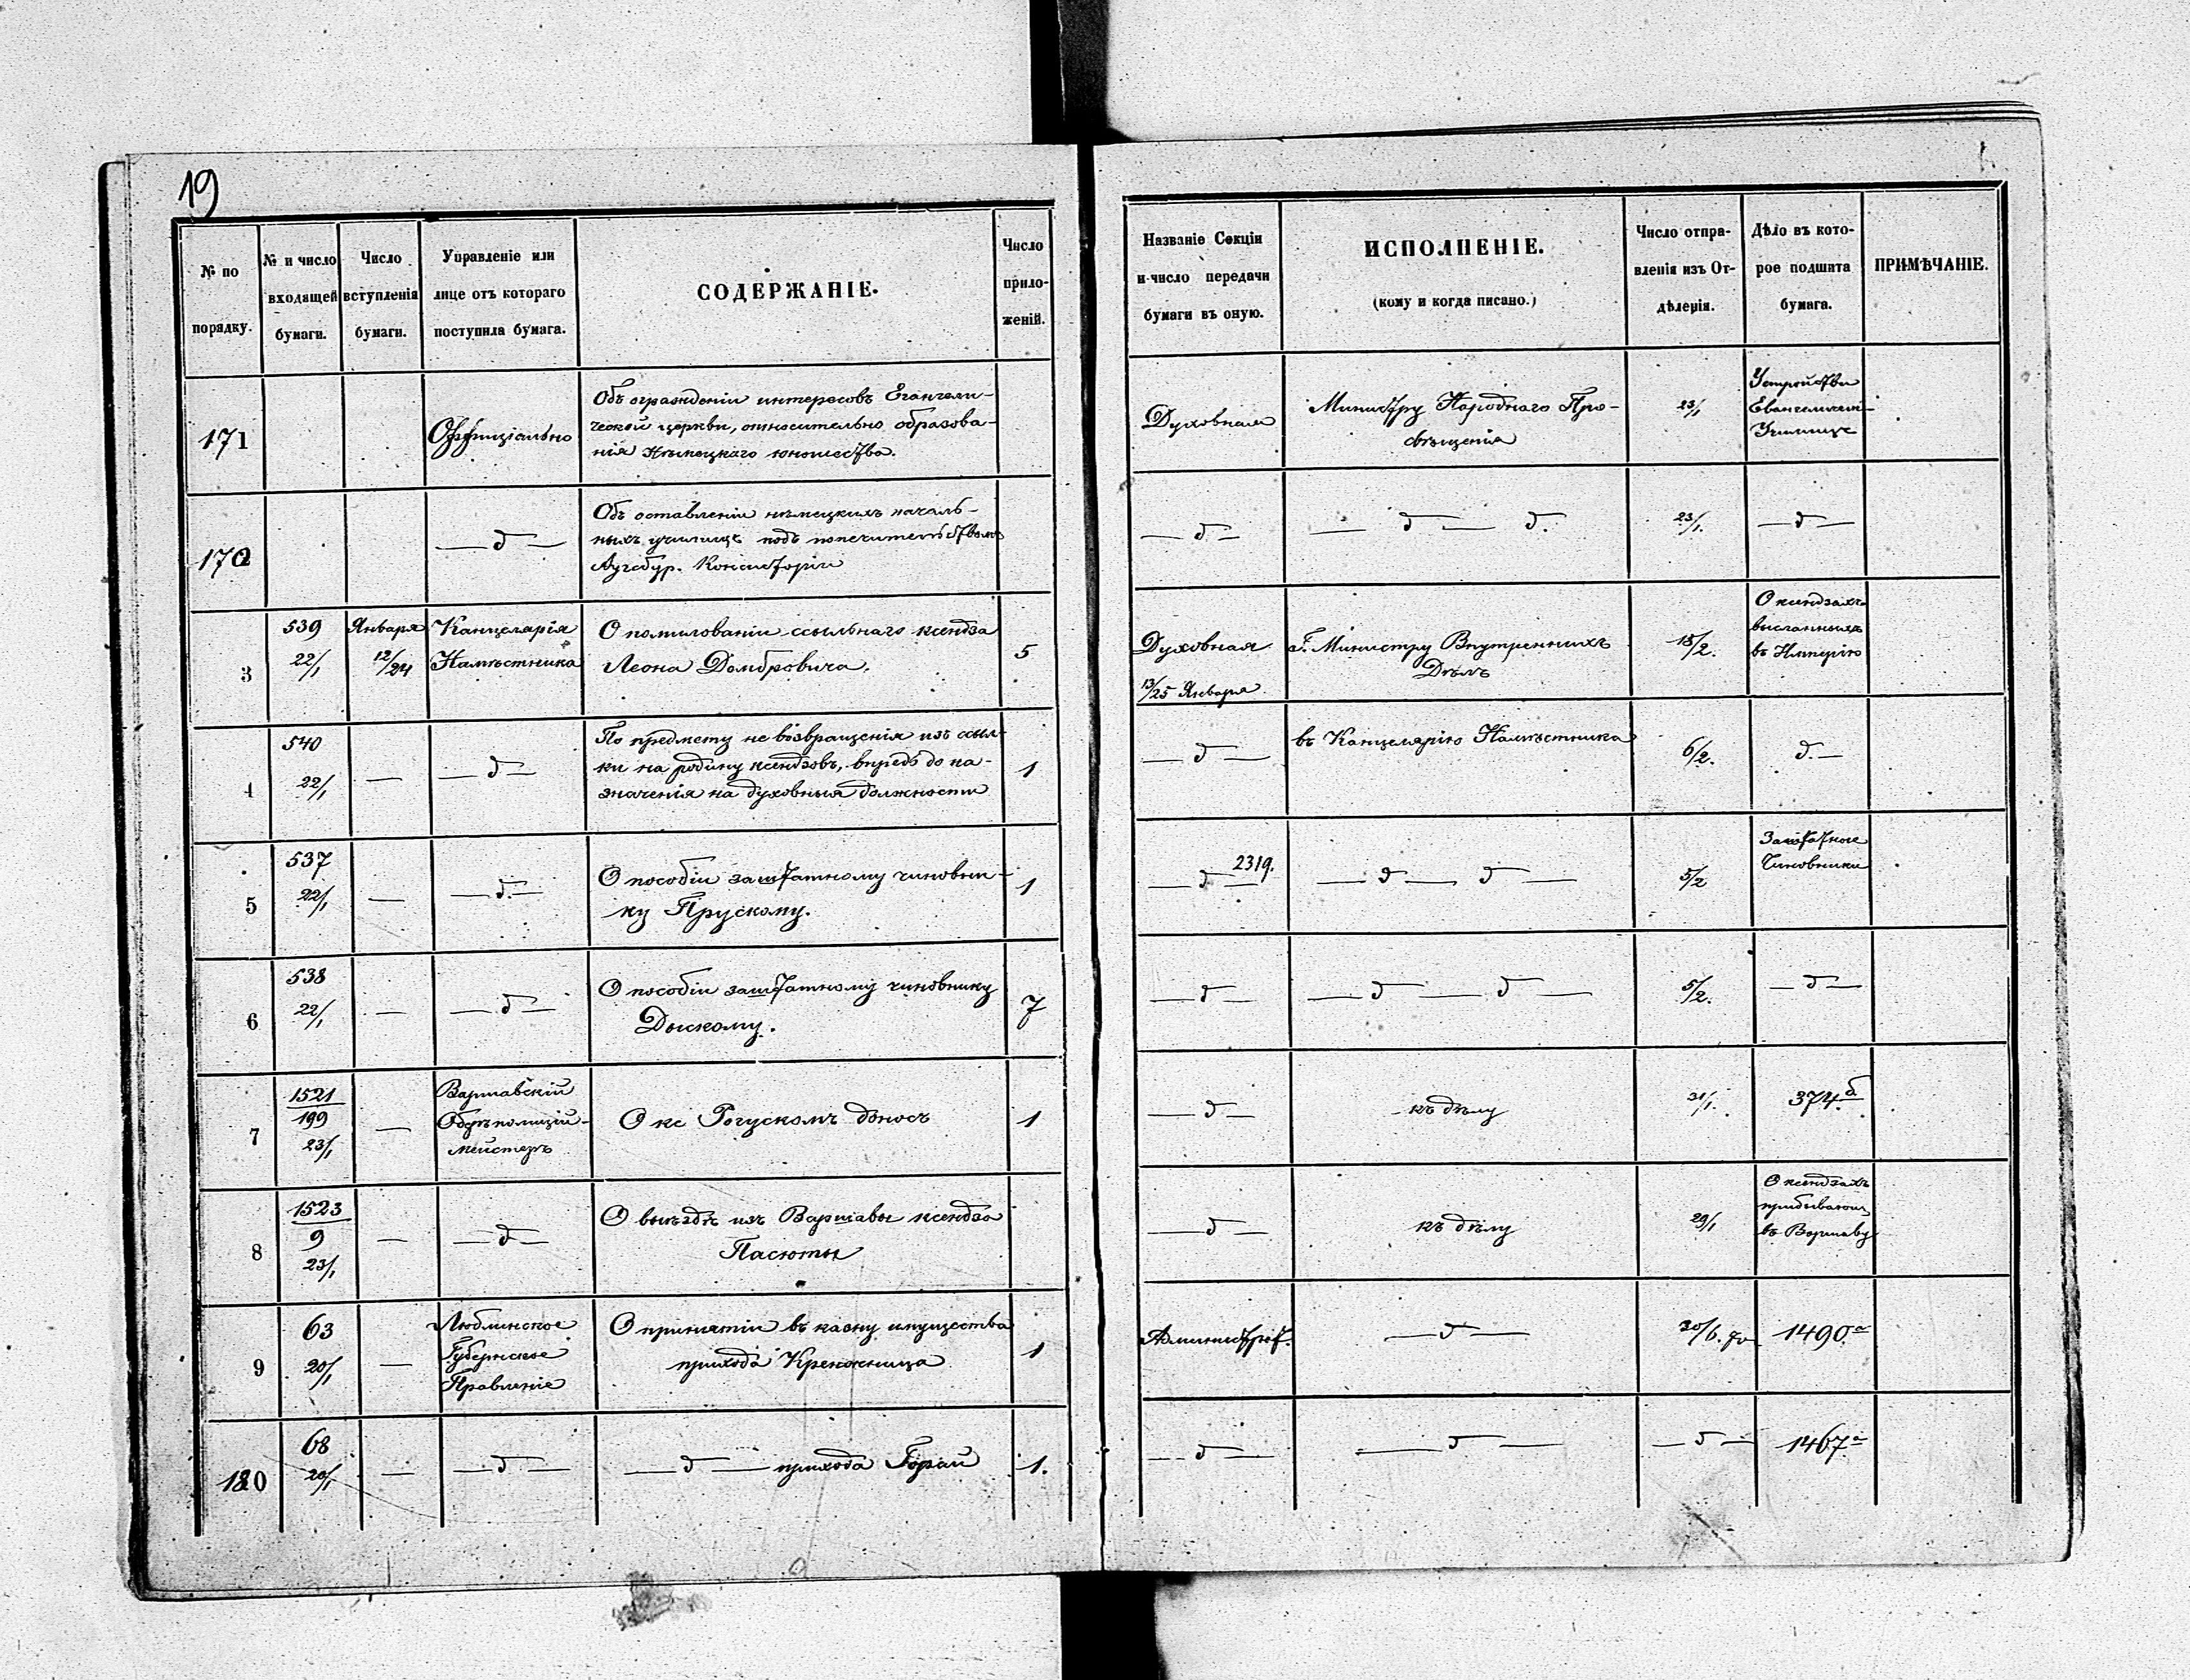 19
№ по
порядку.
№ и число
входящей
бумаги.
Число
вступленія
бумаги.
Управленіе или
лице отъ котораго
поступила бумага.
СОДЕРЖАНІЕ.
Число
прило-
женій.
Названіе Секціи
и число передачи
бумаги въ оную.
ИСПОЛНЕНІЕ.
(кому и когда писано.)
Число отпра-
вленія изъ От-
дѣленія.
Дѣло въ кото-
рое подшита
бумага.
ПРИМѢЧАНІЕ.
171
Оффиціально
Объ огражденіи интересовъ Евангели-
ческой церкви, относительно образова-
нія Нѣмецкаго юношества.
Духовная
Министру Народнаго Про-
свѣщенія
23/1
Устройство
Евангелическ.
Училищъ
172
— д —
Объ оставленіи нѣмецкихъ началь-
ныхъ училищъ подъ попечительствомъ
Аугсбур. Консисторіи
— д —
— д — д.
23/1.
— д —
3
539
22/1
Января
12/24
Канцелярія
Намѣстника
О помилованіи ссыльнаго ксендза
Леона Домбровича.
5
Духовная
13/25 Января
Г. Министру Внутреннихъ
Дѣлъ
15/2.
О ксендзахъ
высланныхъ
въ Имперію
4
540
22/1
—
— д —
По предмету не возвращенія изъ ссыл-
ки на родину ксендзовъ, впредь до на-
значенія на духовныя должности
1
— д —
въ Канцелярію Намѣстника
6/2.
д. —
5
537
22/1
—
— д. —
О пособіи заштатному чиновни-
ку Прускому.
1
2319.
— д —
— д — д —
5/2
Заштатные
Чиновники
6
538
22/1
—
— д —
О пособіи заштатному чиновнику
Дыскому.
7
— д —
— д — д —
5/2.
— д —
7
1521
199
23/1
—
Варшавскій
Оберъполицій-
мейстеръ
О кс Рогускомъ доносъ
1
— д —
къ дѣлу
31/1.
374.б
8
1523
9
23/1
—
— д —
О выѣздѣ изъ Варшавы ксендза
Пасюты
— д —
къ дѣлу
29/1
О ксендзахъ
прибывающ.
въ Варшаву
9
63
20/1
—
Люблинское
Губернское
Правленіе
О принятіи въ казну имущества
прихода Кренжница
1
Администрат.
— д —
30/6.
1490.а
180
68
20/1
—
— д —
— д — прихода Горай
1.
— д —
— д —
— д —
1467.а